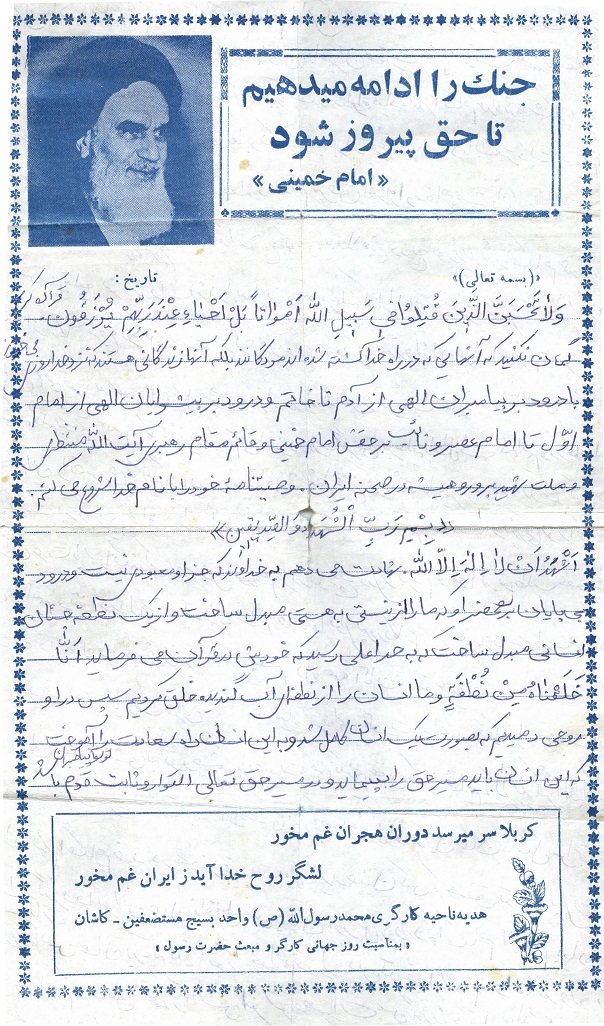 جنك را ادامه میدهیم
تا حق پیروز شود
« امام خمینی »
«(بسمه تعالی)»
تاریخ :
وَلاٰ تَحْسَبَنَّ الَّذِینَ قُتِلُوا فِی سَبِیلِ اللّٰهِ اَمْوٰاتاً بَلْ اَحْیٰاءٌ عِنْدَ رَبِّهِمْ یُرْزَقُونَ.
گمان نکنید که آنهایی که در راه خدا کشته شده اند مردگانند بلکه آنها زندگانی هستند که نزد خدا روزی
با درود بر پیامبران الهی از آدم تا خاتم و درود بر پیشوایان الهی از امام
اوّل تا امام عصر و نائب بر حقش امام خمینی و قائم مقام رهبری آیت اللّه منتظری
و ملت شهید پرور و همیشه در صحنه ایران. وصیتنامهٔ خود را با نام خدا شروع می کنم
«بِسْمِ رَبِّ الْشُهَدٰاءِ وَ الصّدیقین»
اَشْهَدُ اَنْ لاٰ اِلٰهَ اِلاَّ اللّٰه. شهادت می دهم به خداوند که جز او معبودی نیست و درود
بی پایان بر او که ما را از نیستی به هستی مبدل ساخت و از یک نطفه چنان
انسانی مبدل ساخت که به حد اعلی رسید که خودش در قرآن می فرماید
خَلَقْنٰاهُ مِنْ نُطْفَةٍ و ما انسان را از نطفه ای آب گندیده خلق کردیم سپس در او
روحی دمیدیم که بصورت یک انسان کامل شد و به این انسان راه سعادت را آموخت
که این انسان باید مسیر حق را بپیماید و در مسیر حق تعالی استوار و ثابت قدم باشد
کربلا سر میرسد دوران هجران غم مخور
لشگر روح خدا آید ز ایران غم مخور
هدیه ناحیه کارگری محمد رسول الله (ص) واحد بسیج مستضعفین - کاشان
« بمناسبت روز جهانی کارگر و مبعث حضرت رسول »